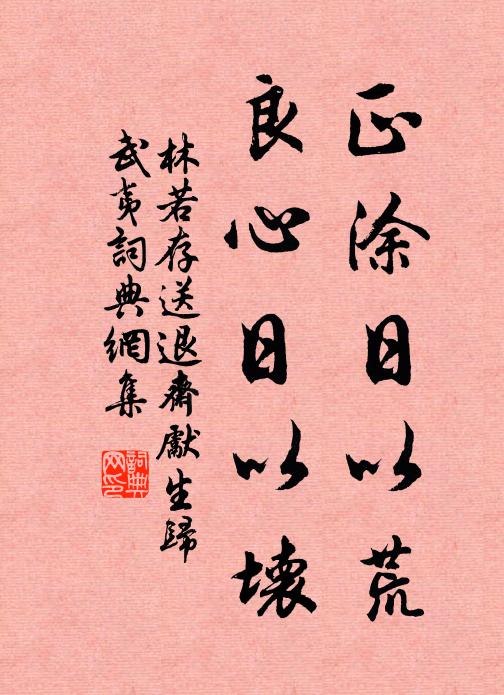 正涂日以荒
良心日以壞
林若存送退齋獻生歸
武夷詞典網集
詞典網印